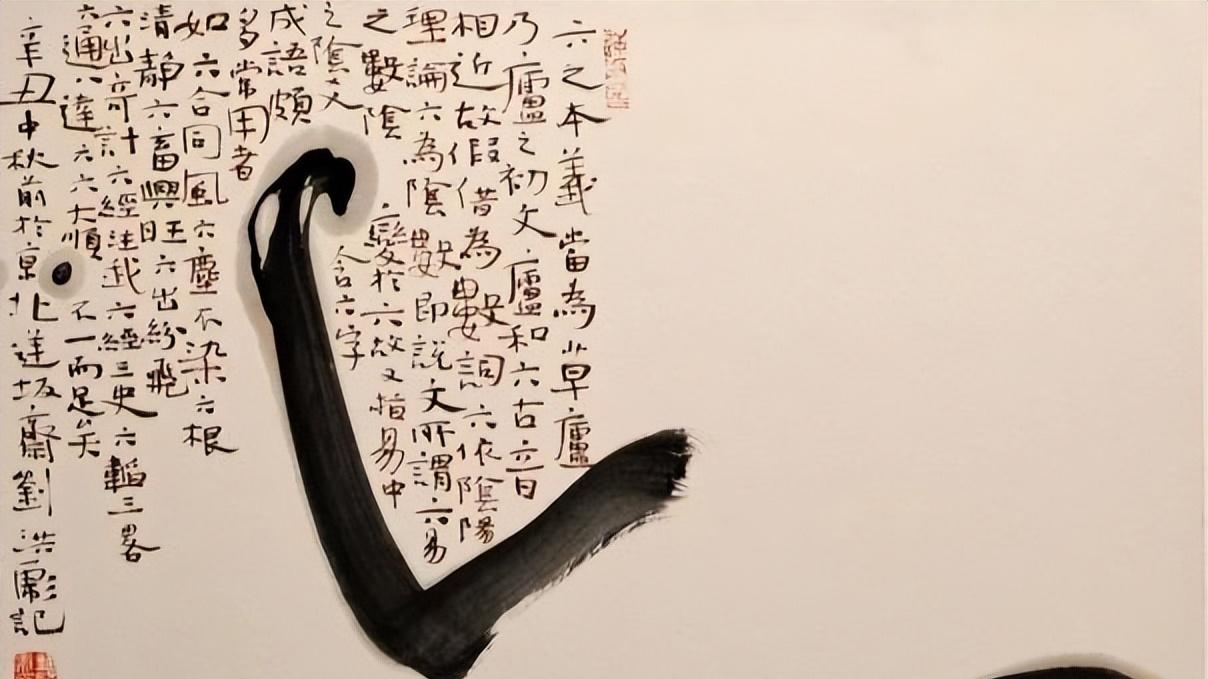 六之本義當為草廬
乃廬之初文廬和六古音
相近故假借為數詞六依陰陽
理論六為陰數即說文所謂六易
之數陰變於六故又指易中
之陰爻含六字
成語頗
多常用者
如六合同風六塵不染六根
清靜六畜興旺六出紛飛
六出奇計六經注我六經三史六韜三畧
六通八達六六大順不一而足矣
辛丑中秋前於京北達坂齋劉洪彪記